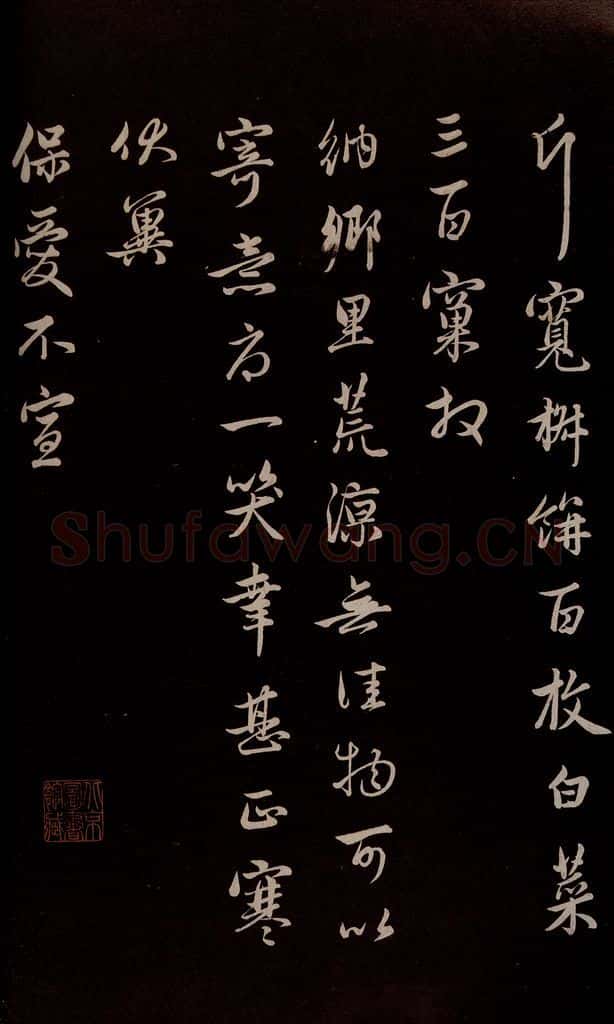 斤寬栟餅百枚白菜
三百窠収
納鄉里荒涼無佳物可以
寄意一笑幸甚正寒
伏冀
保愛不宣
北京圖書館藏
Shufawang.CN